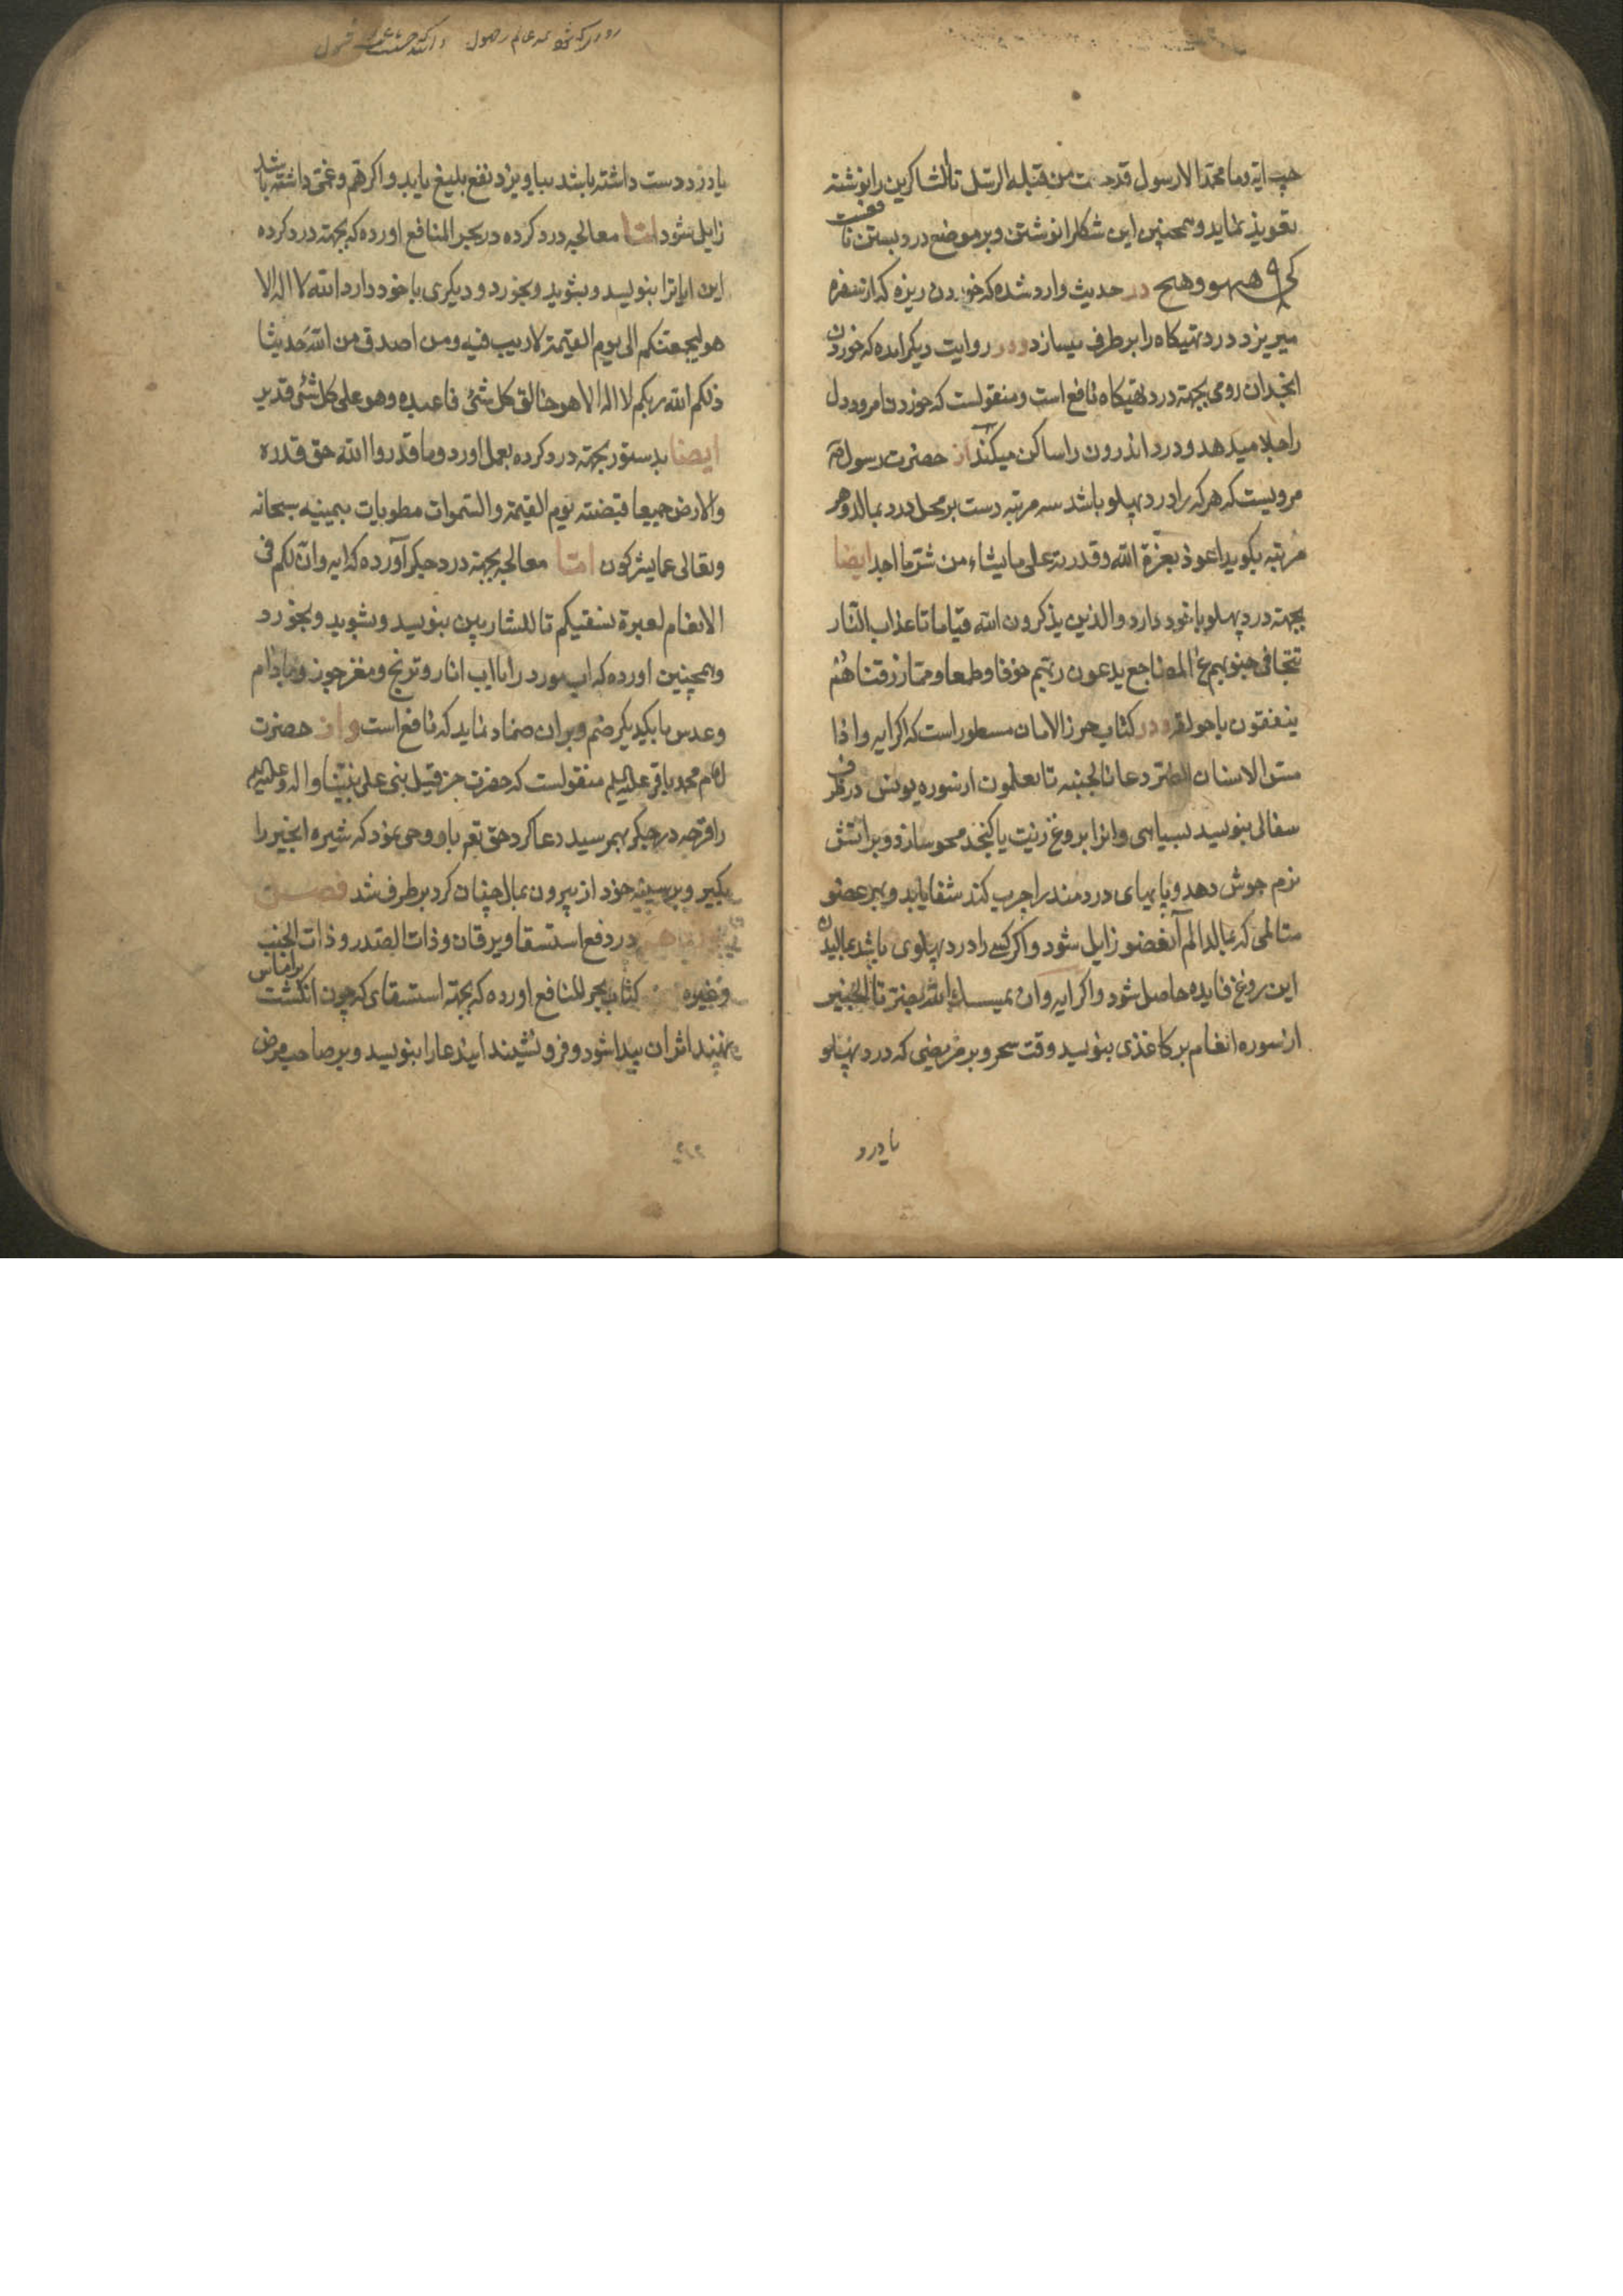 چپ ایة وما محمد الا رسول قد خلت من قبله الرسل تا الشاکرین را نوشته
تعویذ نماید و همچنین این شکل را نوشتن و بر موضع درد بستن نافعست
هیهوو هیح در حدیث وارد شده که خوردن ریزه که از سفره
میریزد درد تهیکاه را بر طرف میسازد و در روایت دیگر امده که خوردن
انجدان رومی بجهة درد تهیکاه نافع است و منقولست که خوردن امرود دل
را جلا میدهد و درد اندرون را ساکن میکند از حضرت رسول ص
مرویست که هر که را درد پهلو باشد سه مرتبه دست بر محل درد بمالد و هر
مرتبه بگوید اعوذ بعزة الله و قدرته علی ما یشاء من شر ما اجد ایضا
بجهة درد پهلو با خود دارد والذین یذکرون الله قیاما تا عذاب النار
تتجافی جنوبهم عن المضاجع یدعون ربهم خوفا وطمعا ومما رزقناهم
ینفقون با حولقه و در کتاب حرز الامان مسطور است که اکر ایه واذا
مس الانسان الضر دعانا لجنبه تا یعلمون از سوره یونس در ظرف
سفالی بنویسد بسیاهی و انرا بروغن زیت یا کنجد محو سازد و بر اتش
نرم جوش دهد و پایهای دردمند را چرب کند شفا یابد و بهر عضو
متالمی که بمالد الم آنعضو زایل شود و اکر کسی را درد پهلوی باشد بمالیدن
این روغن فایده حاصل شود و اکر ایه وان یمسسک الله بضر تا الخبیر
از سوره انعام بر کاغذی بنویسد وقت سحر و بر مریضی که درد پهلو
یا درد
یا درد دست داشته باشد بیاویزد نفع بلیغ یابد و اکر هم و غمی داشته باشد
زایل شود اما معالجه درد کرده در بحر المنافع اورده که بجهة درد کرده
این ایاترا بنویسد و بشوید و بخورد و دیکری با خود دارد الله لا اله الا
هو لیجمعنکم الی یوم القیمة لا ریب فیه ومن اصدق من الله حدیثا
ذلکم الله ربکم لا اله الا هو خالق کل شئ فاعبدوه وهو علی کل شئ قدیر
ایضا بدستور بجهة درد کرده بعمل اورد وما قدروا الله حق قدره
والارض جمیعا قبضته یوم القیمة والسموات مطویات بیمینه سبحانه
وتعالی عما یشرکون اما معالجه بجهة درد جکر آورده که ایه وان لکم فی
الانعام لعبرة نسقیکم تا للشاربین بنویسد و بشوید و بخورد
و همچنین اورده که اب مورد را با اب انار و ترنج و مغز جوز و بادام
و عدس با یکدیکر ضم و بران ضماد نماید که نافع است و از حضرت
امام محمد باقر علیه السلم منقولست که حضرت حزقیل نبی علی نبینا واله وعلیه السلم
را قرحه در جکر بهم رسید دعا کرد حق تعم باو وحی نمود که شیره انجیر را
بکیر و بر سینه خود از بیرون بمال چنان کرد بر طرف شد فصل
در دفع استسقا و یرقان و ذات الصدر و ذات الجنب
و غیره کتاب بحر المنافع اورده که بجهة استسقای که چون انکشت بر اماس
نهند اثر ان پیدا شود و فرو نشیند ایندعا را بنویسد و بر صاحب مرض